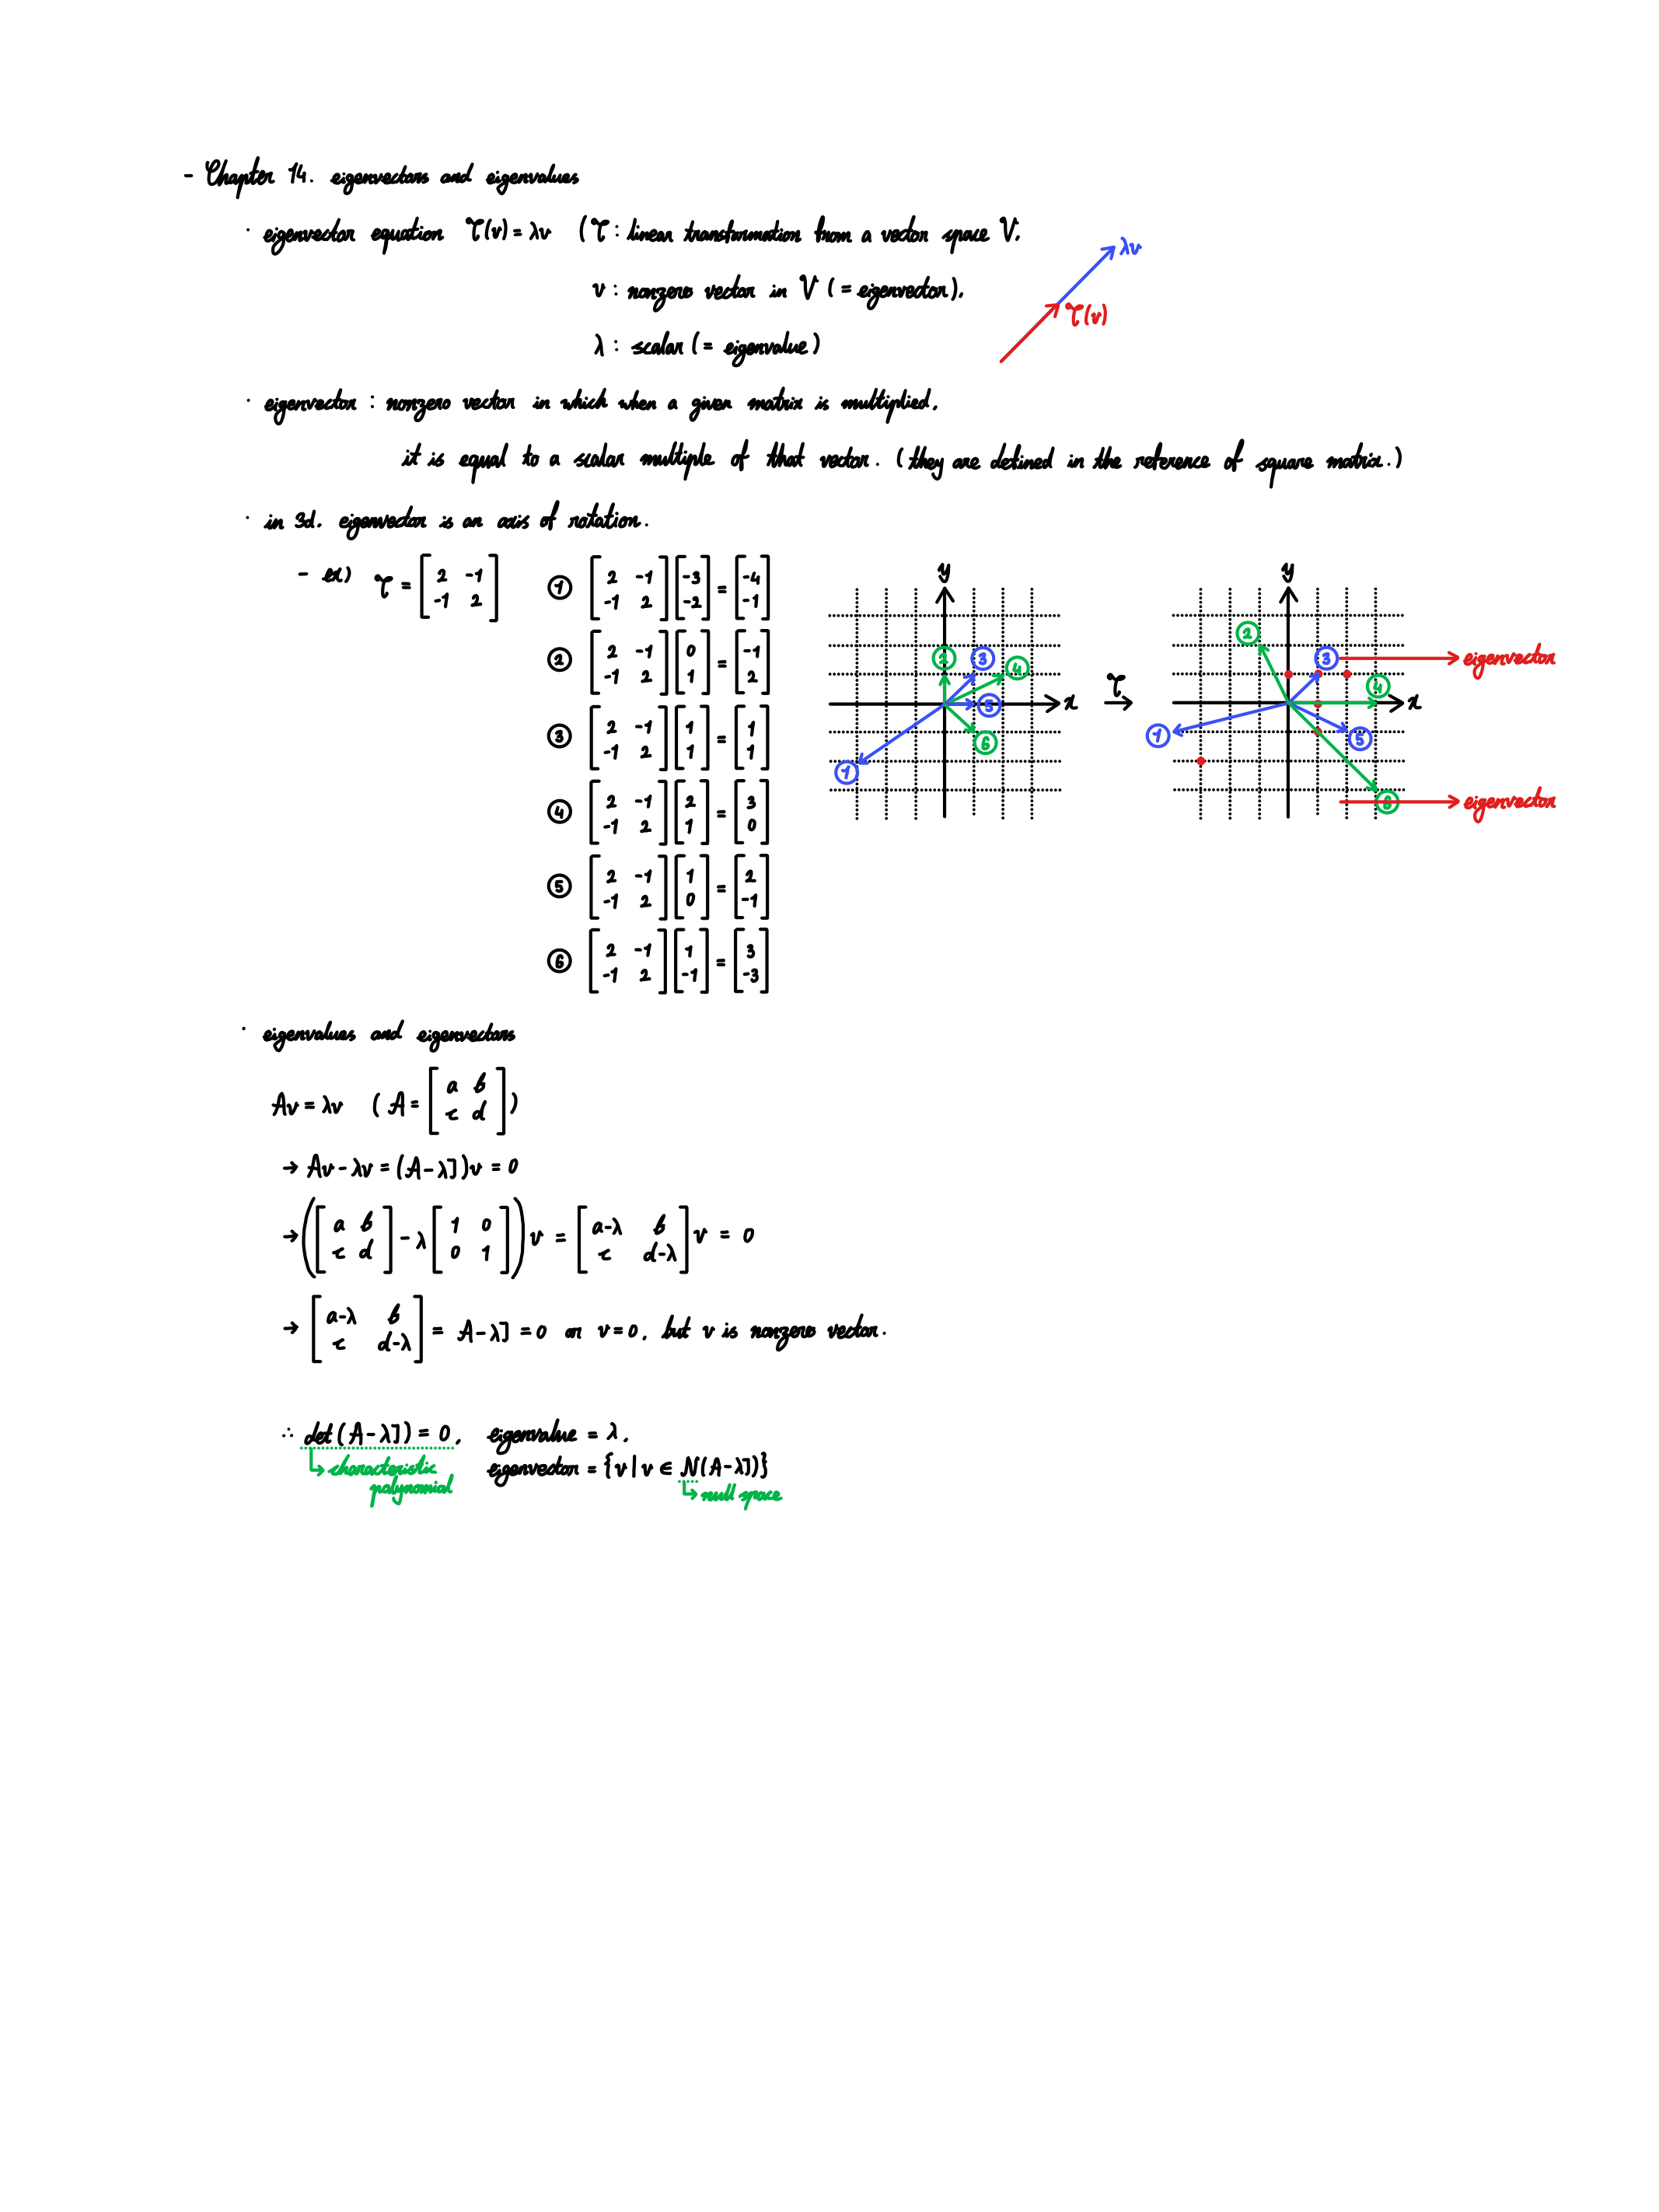 - Chapter 14. eigenvectors and eigenvalues
· eigenvector equation T(v) = λv ( T : linear transformation from a vector space V,
v : nonzero vector in V ( = eigenvector),
λ : scalar ( = eigenvalue )
λv
T(v)
· eigenvector : nonzero vector in which when a given matrix is multiplied,
it is equal to a scalar multiple of that vector. ( they are defined in the reference of square matrix. )
· in 3d, eigenvector is an axis of rotation.
- ex) T = [2 -1; -1 2]
① [2 -1; -1 2] [-3; -2] = [-4; -1]
② [2 -1; -1 2] [0; 1] = [-1; 2]
③ [2 -1; -1 2] [1; 1] = [1; 1]
④ [2 -1; -1 2] [2; 1] = [3; 0]
⑤ [2 -1; -1 2] [1; 0] = [2; -1]
⑥ [2 -1; -1 2] [1; -1] = [3; -3]
y
② ③ ④
⑤ x
⑥
①
T →
y
②
③ → eigenvector
④ x
① ⑤
⑥ → eigenvector
· eigenvalues and eigenvectors
Av = λv ( A = [a b; c d] )
→ Av - λv = (A - λI)v = 0
→ ([a b; c d] - λ [1 0; 0 1]) v = [a-λ b; c d-λ] v = 0
→ [a-λ b; c d-λ] = A - λI = 0 or v = 0, but v is nonzero vector.
∴ det(A - λI) = 0, eigenvalue = λ,
↳ characteristic
polynomial
eigenvector = {v | v ∈ N(A - λI)}
↳ null space